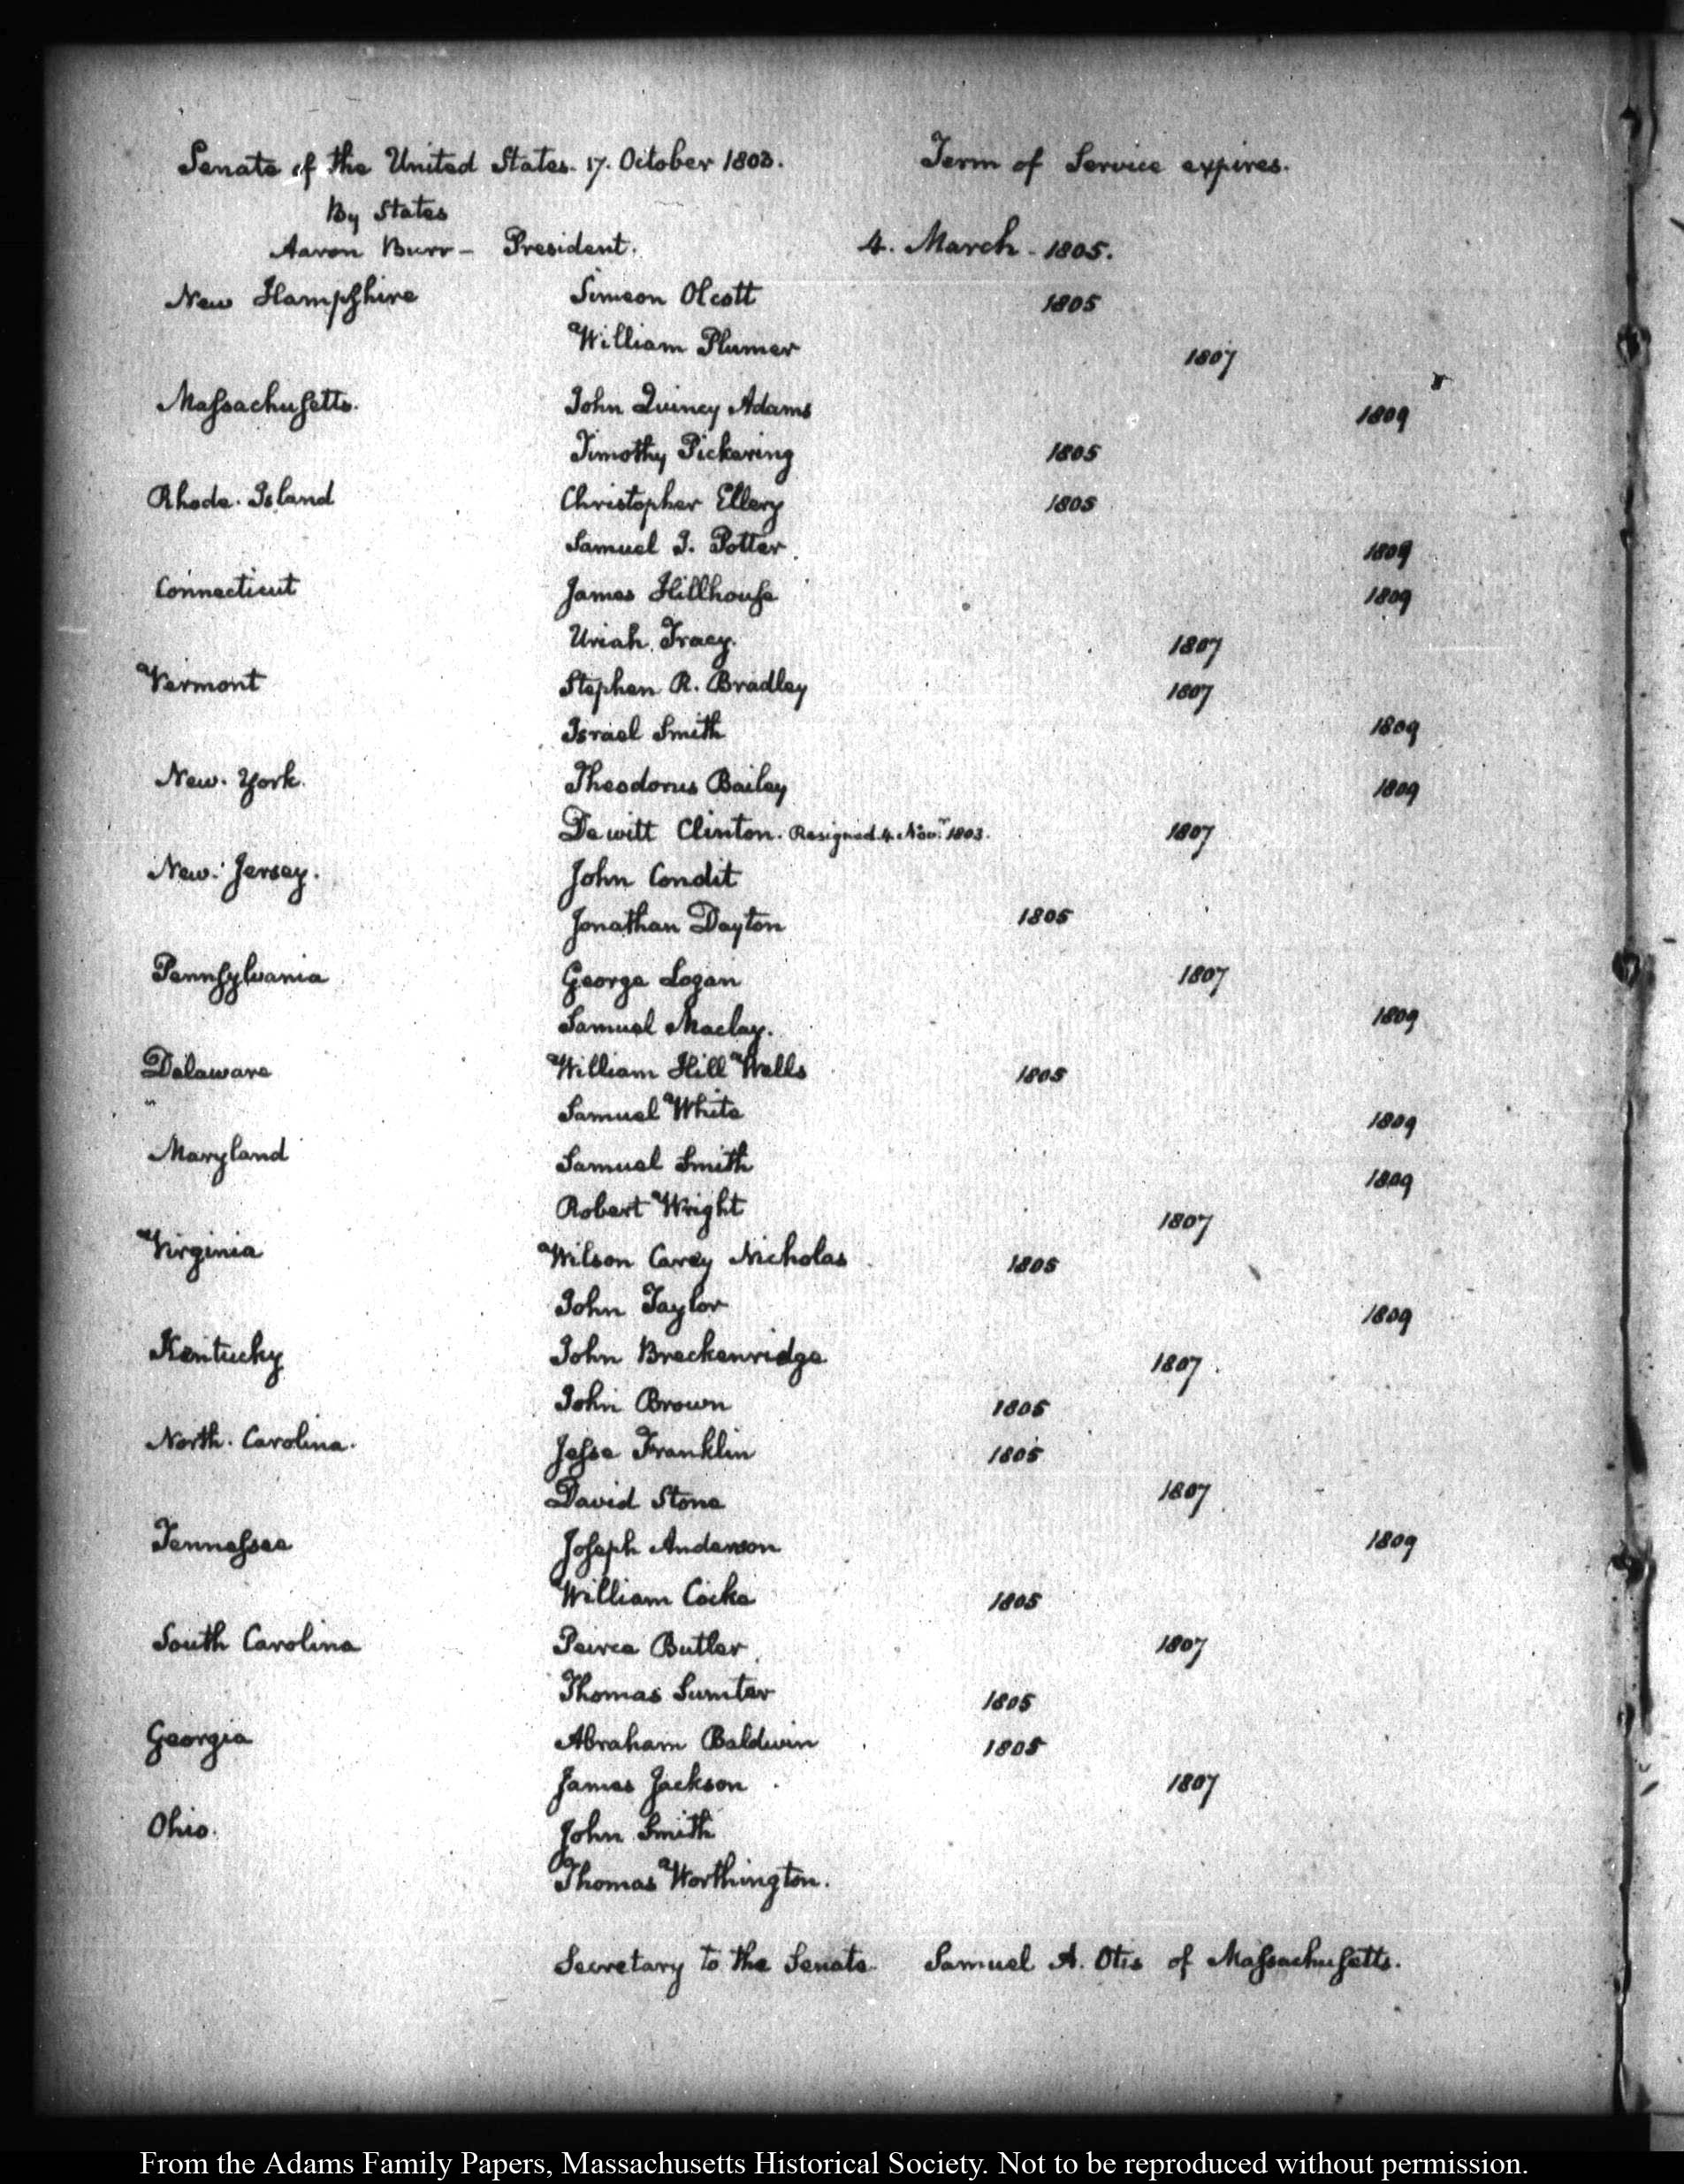 Senate of the United States. 17. October 1803. Term of Service expires.
By States
Aaron Burr – President. 4. March - 1805.
New Hampſhire Simeon Olcott 1805
William Plumer 1807
Maſsachuſetts. John Quincy Adams 1809
Timothy Pickering 1805
Rhode. Island Christopher Ellery 1805
Samuel J. Potter. 1809
Connecticut James Hillhouſe 1809
Uriah Tracy. 1807
Vermont Stephen R. Bradley 1807
Israel Smith 1809
New. York. Theodorus Bailey 1809
Dewitt Clinton. Resigned. 4. Novr. 1803. 1807
New. Jersey. John Condit
Jonathan Dayton 1805
Pennſylvania George Logan 1807
Samuel Maclay. 1809
Delaware William Hill Wells 1805
" Samuel White 1809
Maryland Samuel Smith 1809
Robert Wright 1807
Virginia Wilson Carey Nicholas 1805
John Taylor 1809
Kentucky John Breckenridge 1807.
John Brown 1805
North. Carolina. Jeſse Franklin 1805
David Stone 1807
Tenneſsee Joſeph Anderson 1809
William Cocke 1805
South Carolina Peirce Butler 1807
Thomas Sumter 1805
Georgia Abraham Baldwin 1805
James Jackson 1807
Ohio. John Smith
Thomas Worthington.
Secretary to the Senate. Samuel A. Otis of Maſsachuſetts.
From the Adams Family Papers, Massachusetts Historical Society. Not to be reproduced without permission.